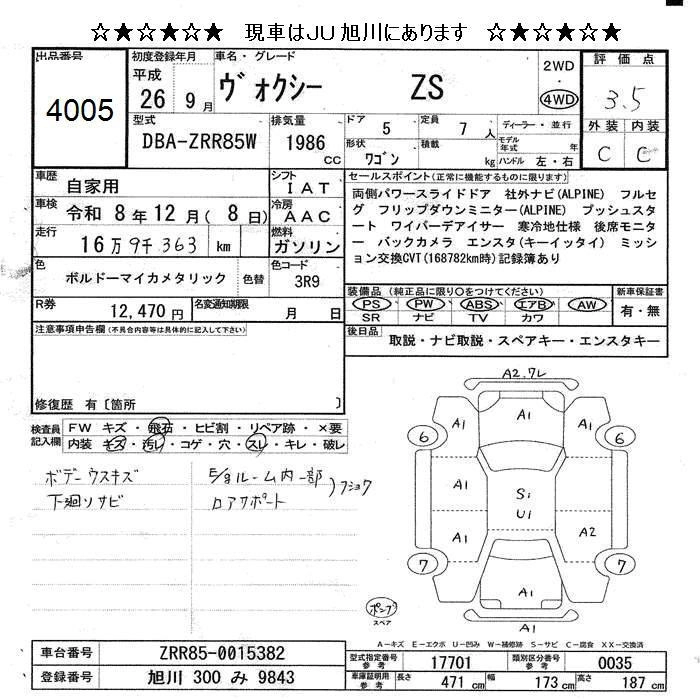 ☆★☆★☆★ 現車はJU旭川にあります ☆★☆★☆★
出品番号
4005
初度登録年月
平成
26年 9月
車名・グレード
ヴォクシー ZS
2WD
・
4WD
評価点
3.5
外装 内装
C C
型式
DBA-ZRR85W
排気量
1986
cc
ドア 5
定員 7人
形状 ワゴン
積載 kg
ディーラー・並行
モデル年式 年
ハンドル 左・右
車歴 自家用
シフト IAT
車検 令和 8年12月( 8日)
冷房 AAC
走行 16万9千363 km
燃料 ガソリン
色 ボルドーマイカメタリック 色替
色コード 3R9
R券 12,470円
名変通知期限 月 日
セールスポイント(正常に機能するものに限ります)
両側パワースライドドア 社外ナビ(ALPINE) フルセ
グ フリップダウンミニター(ALPINE) プッシュスタ
ート ワイパーデアイサー 寒冷地仕様 後席モニタ
ー バックカメラ エンスタ(キーイッタイ) ミッシ
ョン交換CVT(168782km時)記録簿あり
装備品 (純正品に限り○をつけてください)
PS・PW・ABS・エアB・AW・
SR ナビ TV カワ
新車保証書
有・無
後日品 取説・ナビ取説・スペアキー・エンスタキー
注意事項申告欄(不具合内容等は具体的に記入して下さい)
修復歴 有〔箇所 〕
検査員記入欄
FW キズ・飛石・ヒビ割・リペア跡・×要
内装 キズ・汚レ・コゲ・穴・スレ・キレ・破レ
ボデーウスキズ
下廻リサビ
E/gルーム内一部
ロアサポート
)フショク
A2.7L
A1
A1 A1
6 6
A1
Si
Ui
A1 A2
7 7
A1
A1
ポンプ
スペア
A-キズ E-エクボ U-凹み W-補修跡 S-サビ C-腐食 XX-交換済
車台番号 ZRR85-0015382
登録番号 旭川 300 み 9843
型式指定番号 参考 17701
類別区分番号 参考 0035
車庫証明用 参考 長さ 471cm 幅 173cm 高さ 187cm